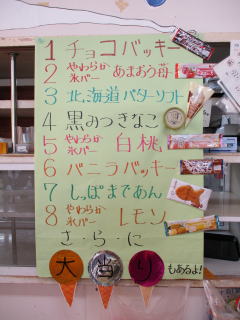 1 チョコバッキー
2 やわらか氷バー あまおう苺
3 北海道バターソフト
4 黒みつきなこ
5 やわらか氷バー 白桃
6 バニラバッキー
7 しっぽまであん
8 やわらか氷バー レモン
さ・ら・に
大当り もあるよ!